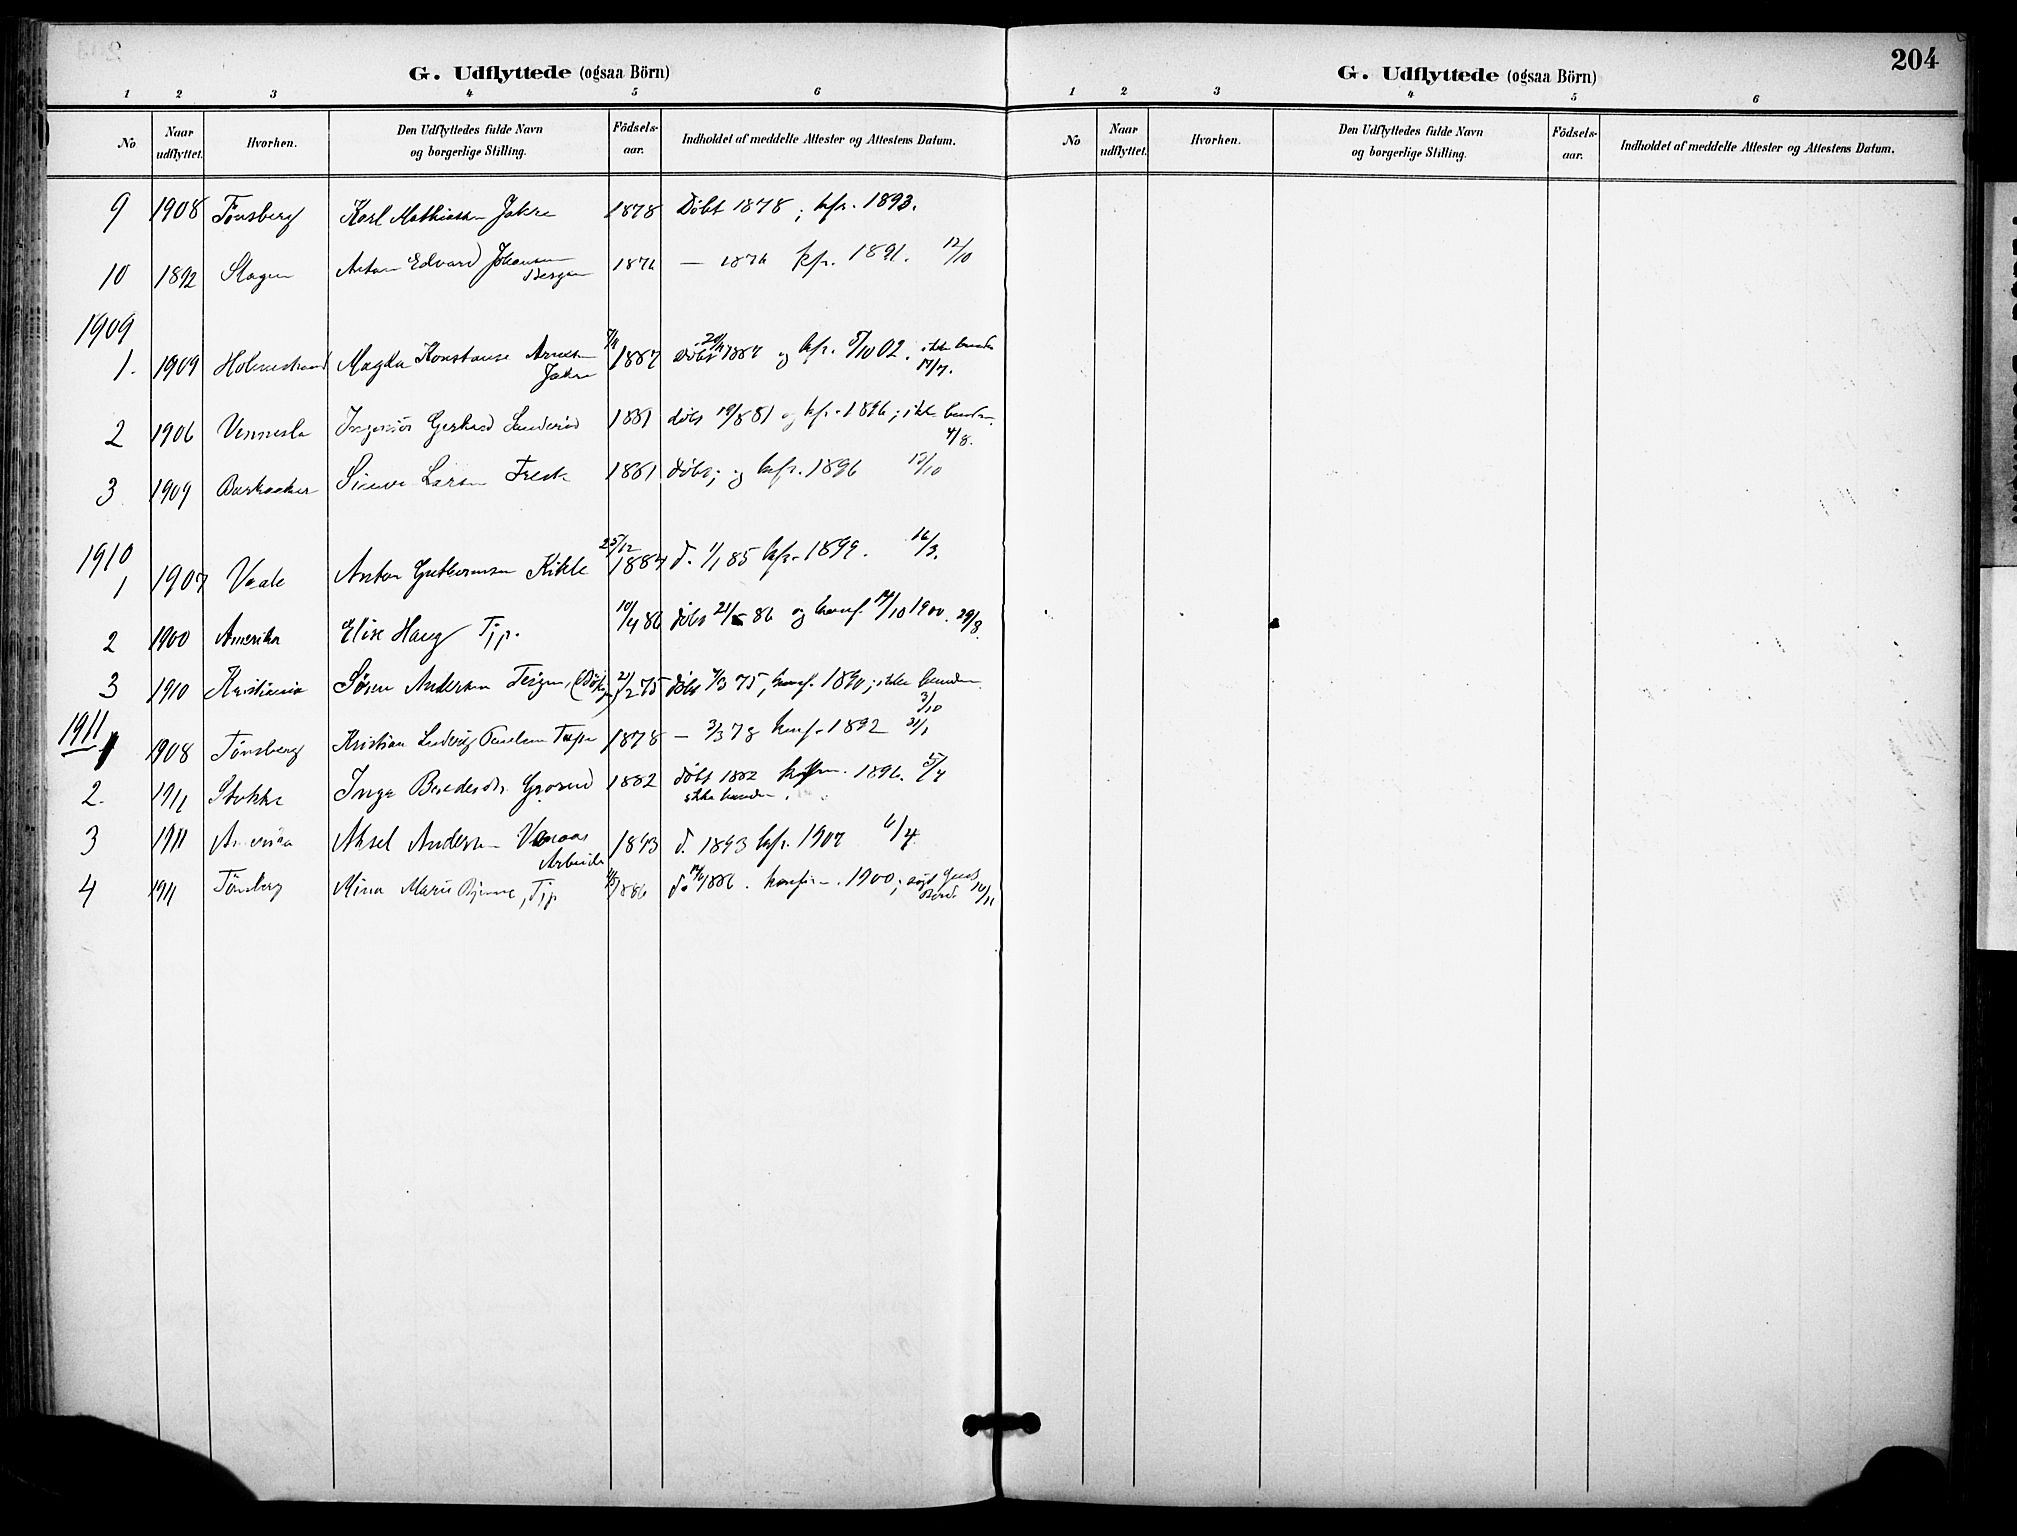 G. Udflyttede (ogsaa Börn)
1 2 3 4 5 6
No Naar udflyttet. Hvorhen. Den Udflyttedes fulde Navn og borgerlige Stilling. Födsels-aar. Indholdet af meddelte Attester og Attestens Datum.
9 1908 Tønsberg Karl Mathiassen Jakre 1878 Døbt 1878; kfr. 1893.
10 1892 Slagen Anton Edvard Johansen Bergan 1876 — 1876 kfr. 1891. 12/10
1909
1. 1909 Holmestrand Magda Konstanse Arnesen Jakre 1887 Døbt 1887 og kfr. 5/10 02. ikke bunden 17/7.
2 1906 Vennesla Ingeniør Gerhard 1881 døbt 19/8 81 og kfr. 1896; ikke bunden. 4/8.
3 1909 Barkaaker Larsen 1881 døbt; og kfr. 1896 12/10
1910
1 1907 Vaale Anton Guttormsen Kikle 25/12 1884 d. 1/1 85 kfr. 1899. 16/3.
2 1900 Amerika Elise Haug Tjp. 10/4 86 døbt 21/5 86 og konf. 14/10 1900. 29/8.
3 1910 Kristiania Søren Andersen 21/2 75 døbt 7/3 75, konf. 1890; ikke bunden. 3/10
1911
1 1908 Tønsberg Kristian Ludvig Paulsen 1878 — 3/3 78 konf. 1892 31/1
2. 1911 Stokke Inga 1882 døbt 1882 konfirm. 1896. 5/4
ikke bunden.
3 1911 Aksel Andersen Arbeider 1893 d. 1893 kfr. 1907 6/4.
4 1911 Tønsberg Mina Marie Tjp 1886 d. 1886. konfirm. 1900; 10/11
204
G. Udflyttede (ogsaa Börn)
1 2 3 4 5 6
No Naar udflyttet. Hvorhen. Den Udflyttedes fulde Navn og borgerlige Stilling. Födsels-aar. Indholdet af meddelte Attester og Attestens Datum.